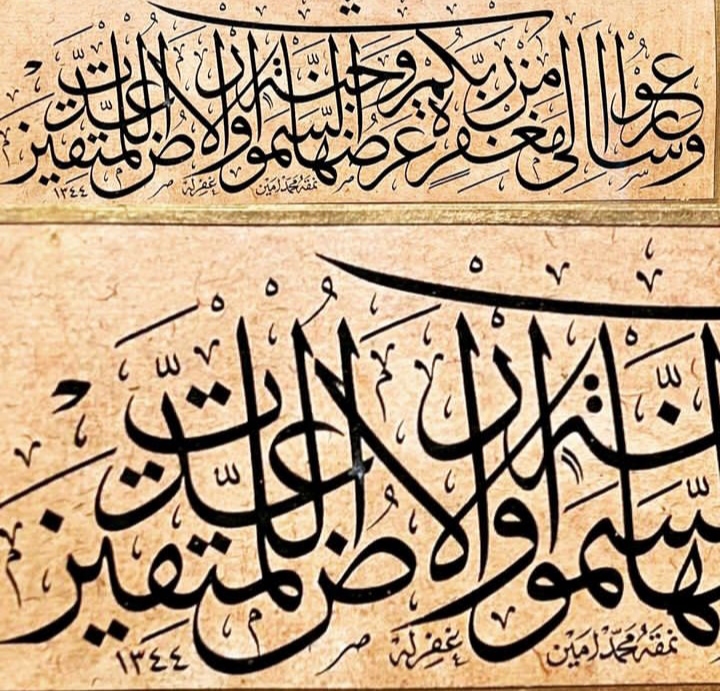 وسارعوا الى مغفرة من ربكم وجنة عرضها السموات والارض اعدت للمتقين
نمقه محمد امين غفر له ١٣٤٤
نة ها السموات والارض اعدت للمتقين
نمقه محمد امين غفر له ١٣٤٤